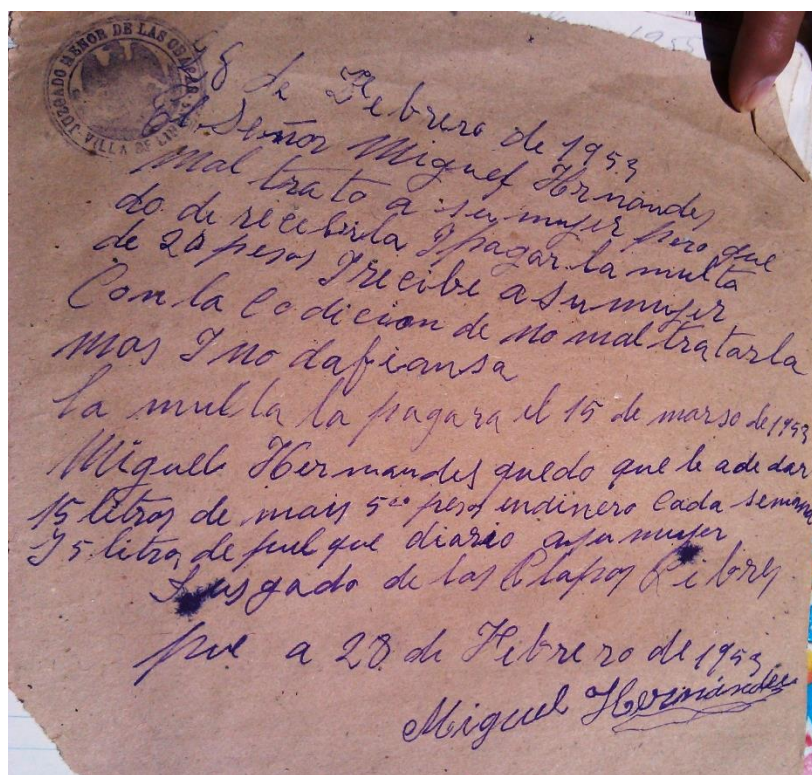 JUZGADO MENOR DE LAS
VILLA DE
28 de Febrero de 1953
El Señor Miguel Hrnandes
mal trato a su mujer pero que
do de recebirla I pagar la multa
de 20 pesos I recibe a su mujer
Con la Codicion de no mal tratarla
mas I no da fiansa
la multa la pagara el 15 de marso de 1953
Miguel Hernandes quedo que le ade dar
15 litros de mais 5oo pesos endinero Cada semana
I 5 litros de pulque diario a su mujer
Jusgado de las Libres
pue a 28 de Febrero de 1953
Miguel Hernández